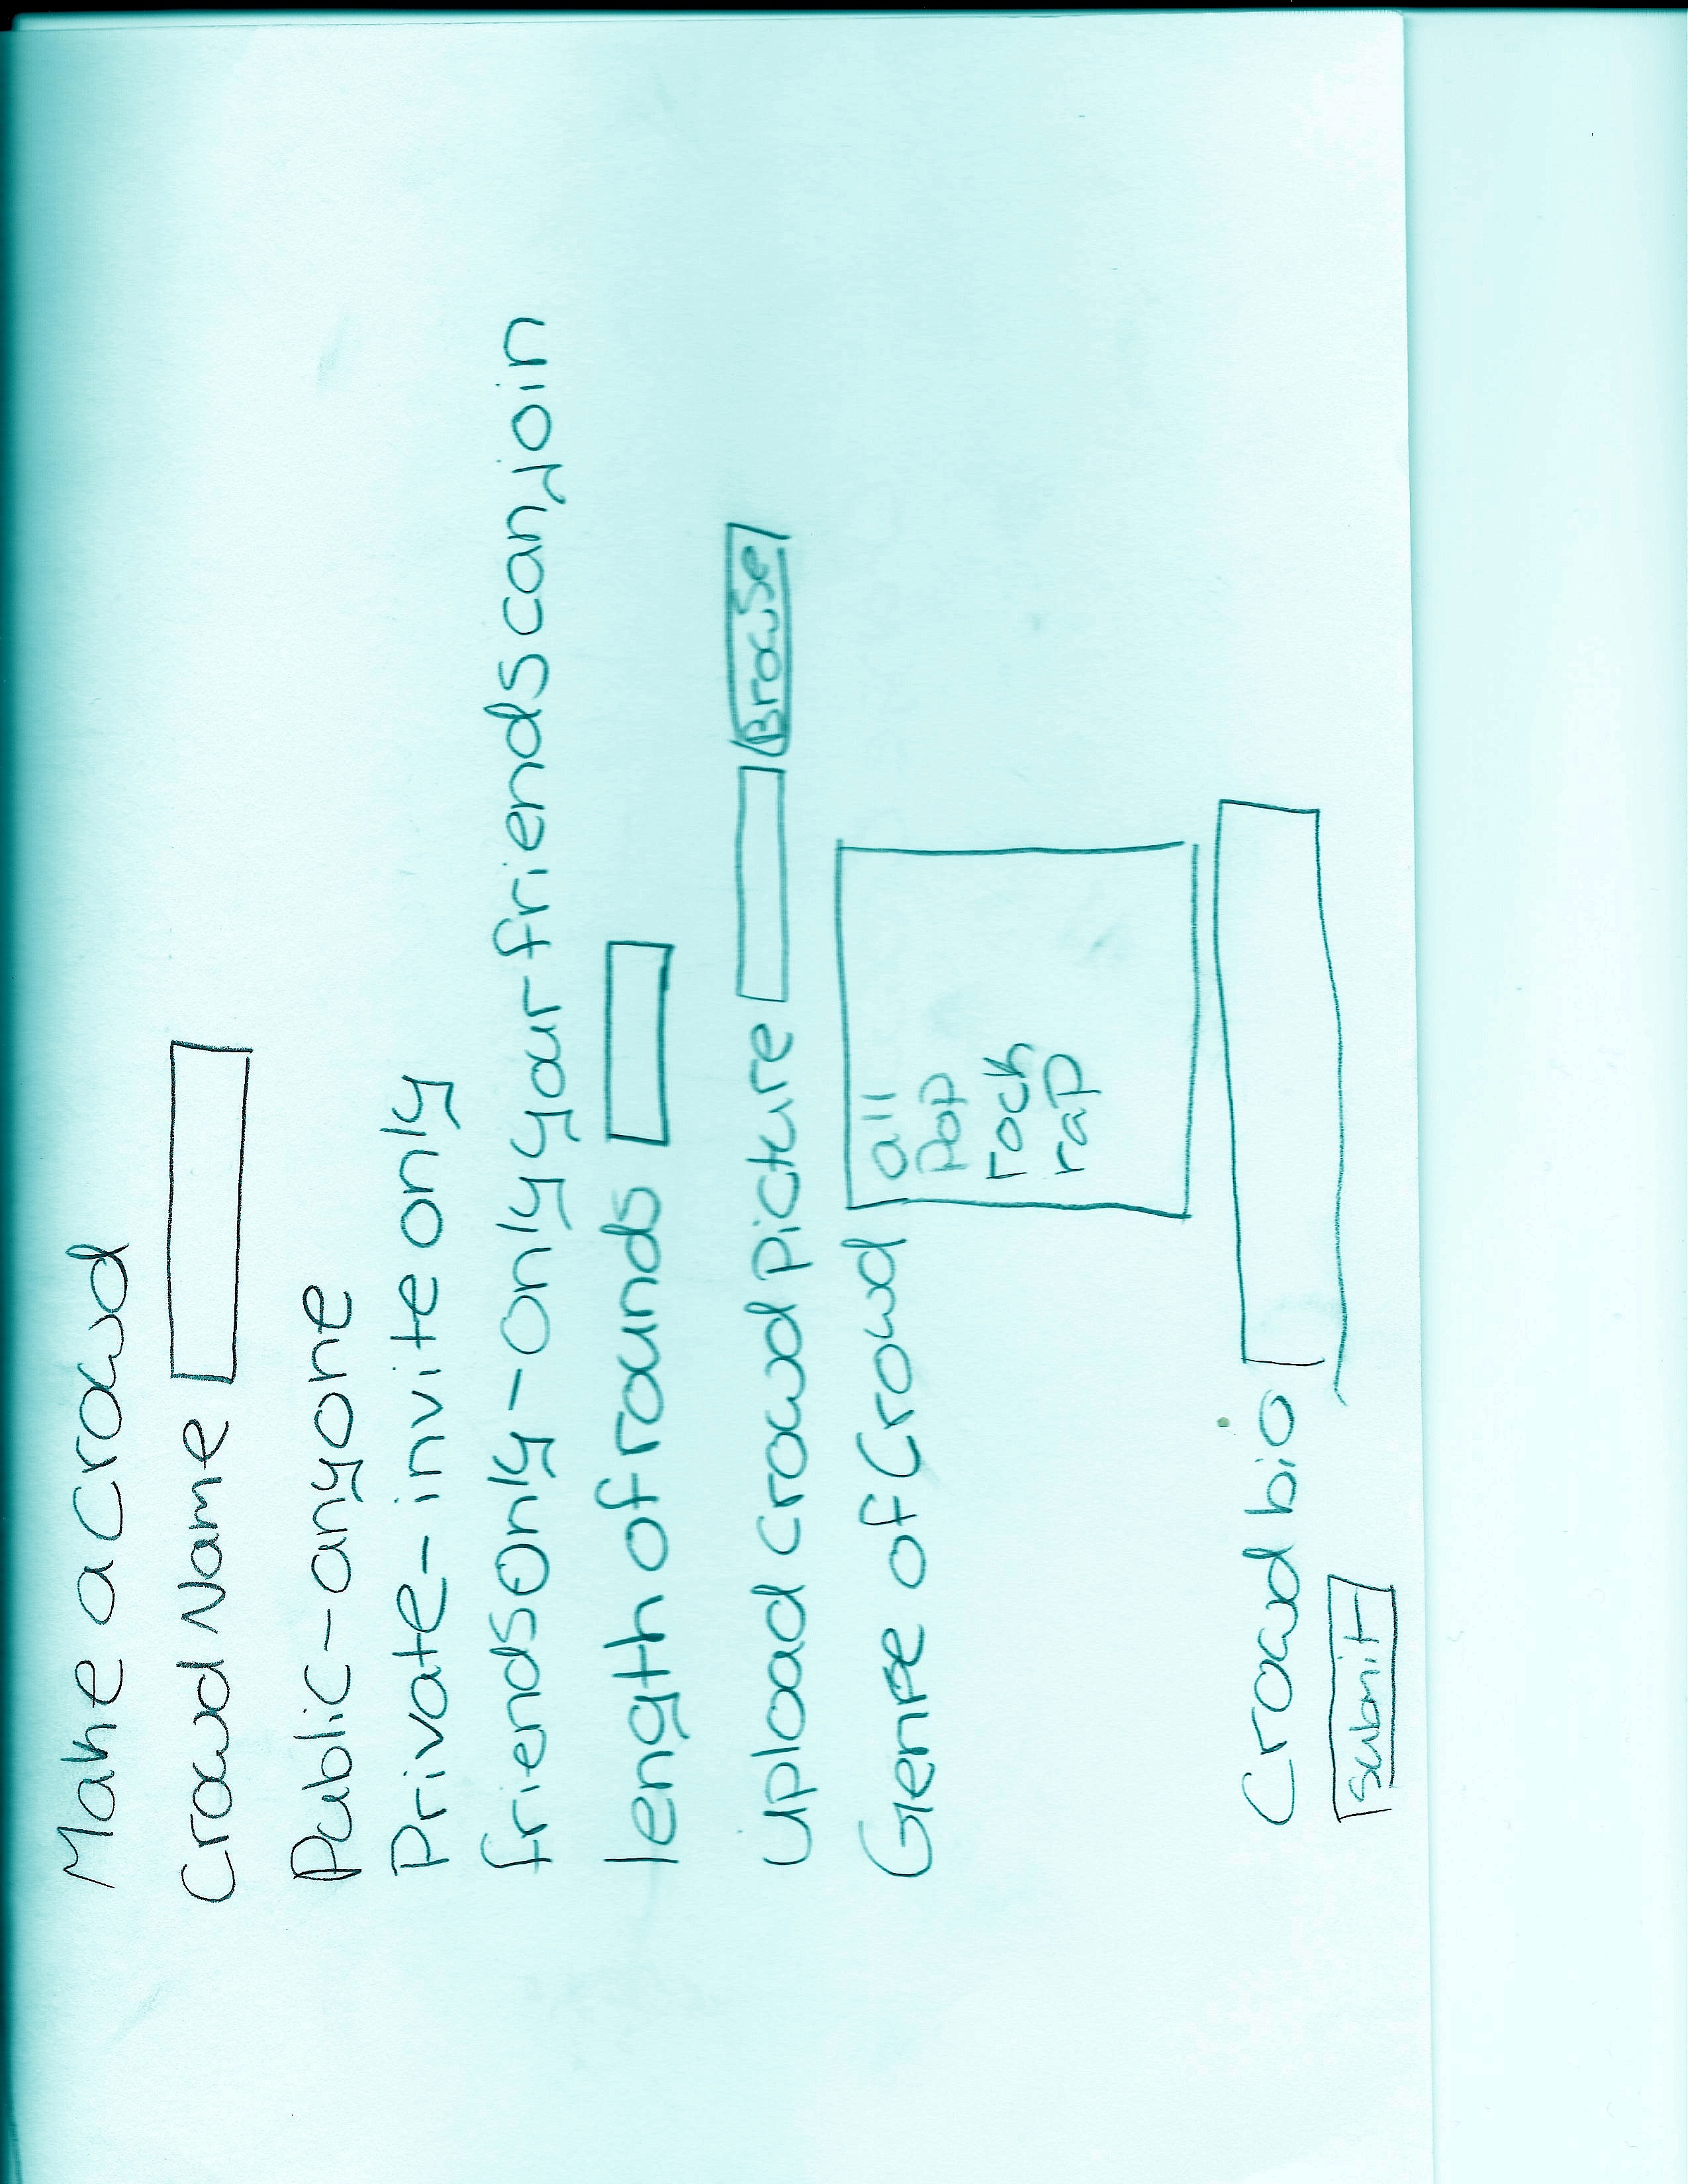 Make a crowd
Crowd Name
Public - anyone
Private - invite only
friends only - only your friends can join
length of rounds
upload crowd picture Browse
Genre of Crowd all
pop
rock
rap
Crowd bio
submit